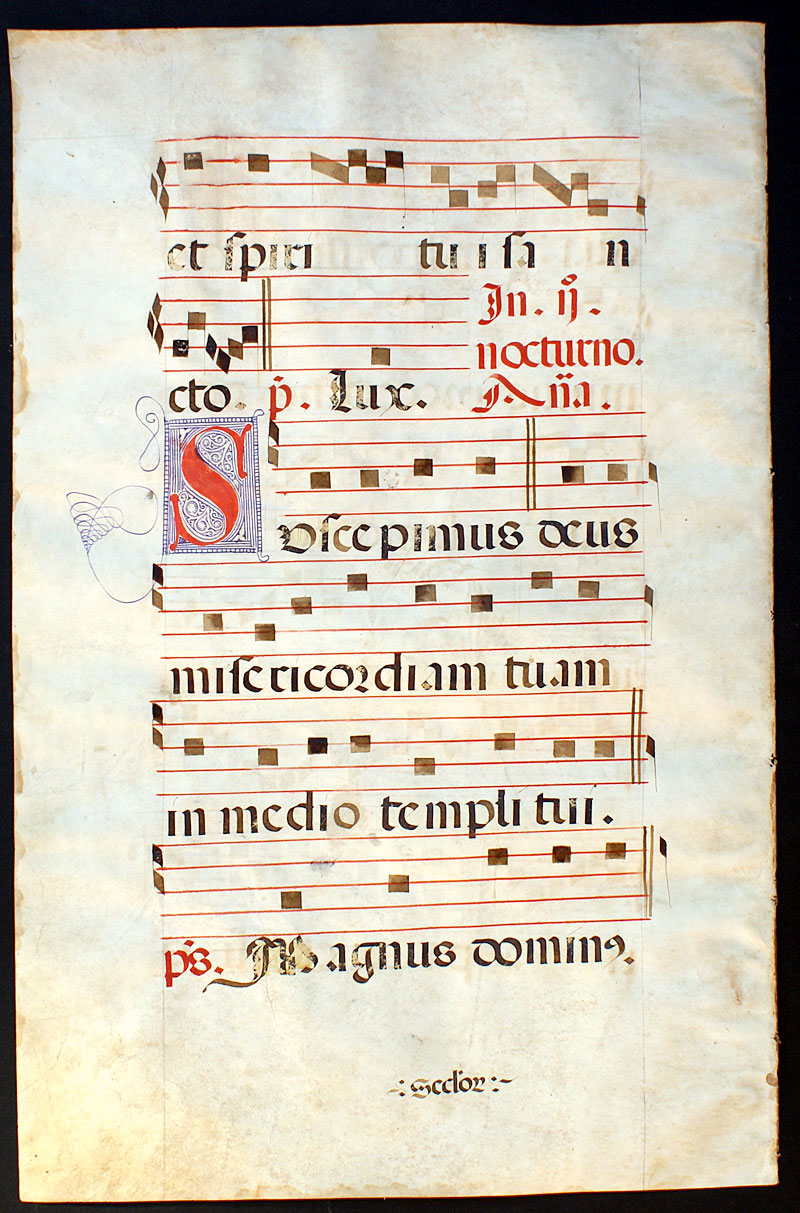 et spiri tui sa n
In. ij.
nocturno.
cto. p̄. Lux. Añа.
Suscepimus deus
misericordiam tuam
in medio templi tui.
p̄s. Magnus dominꝰ.
Seclor